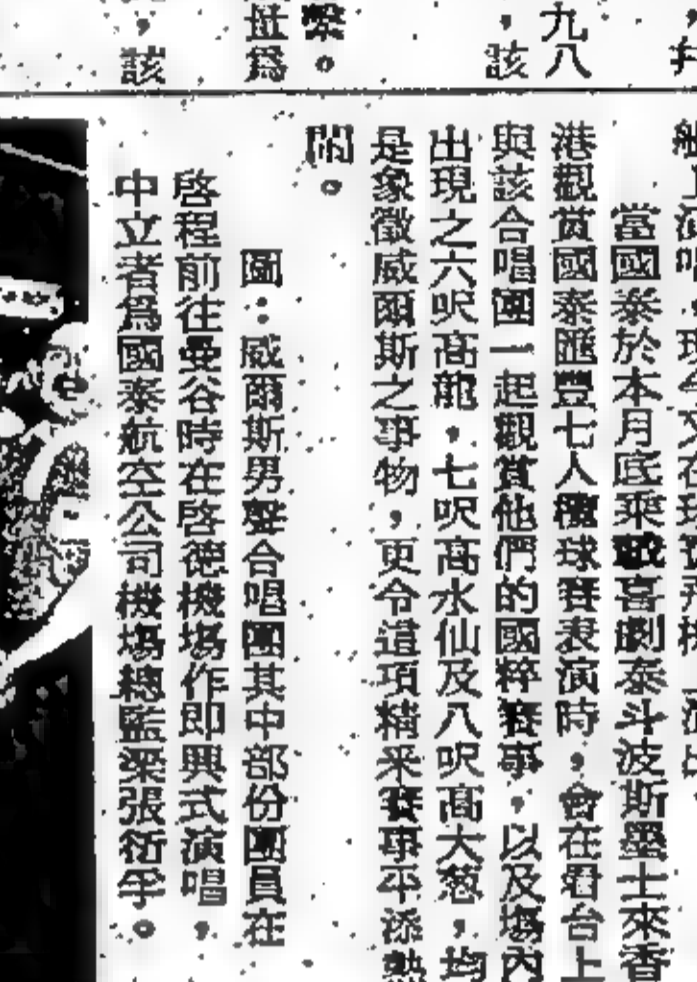 九八
，該
繫。
世爲
，該
當國泰於本月底乘載喜劇泰斗波斯墨士來香
港觀賞國泰匯豐七人欖球賽表演時，會在看台上
與該合唱團一起觀賞他們的國粹賽事，以及塲內
出現之六呎高龍，七呎高水仙及八呎高大葱，均
是象徵威爾斯之事物，更令這項精釆賽事平添熱
鬧。
圖：威爾斯男聲合唱團其中部份團員在
啓程前往曼谷時在啓德機塲作即興式演唱，
中立者爲國泰航空公司機塲總監梁張衍孚。